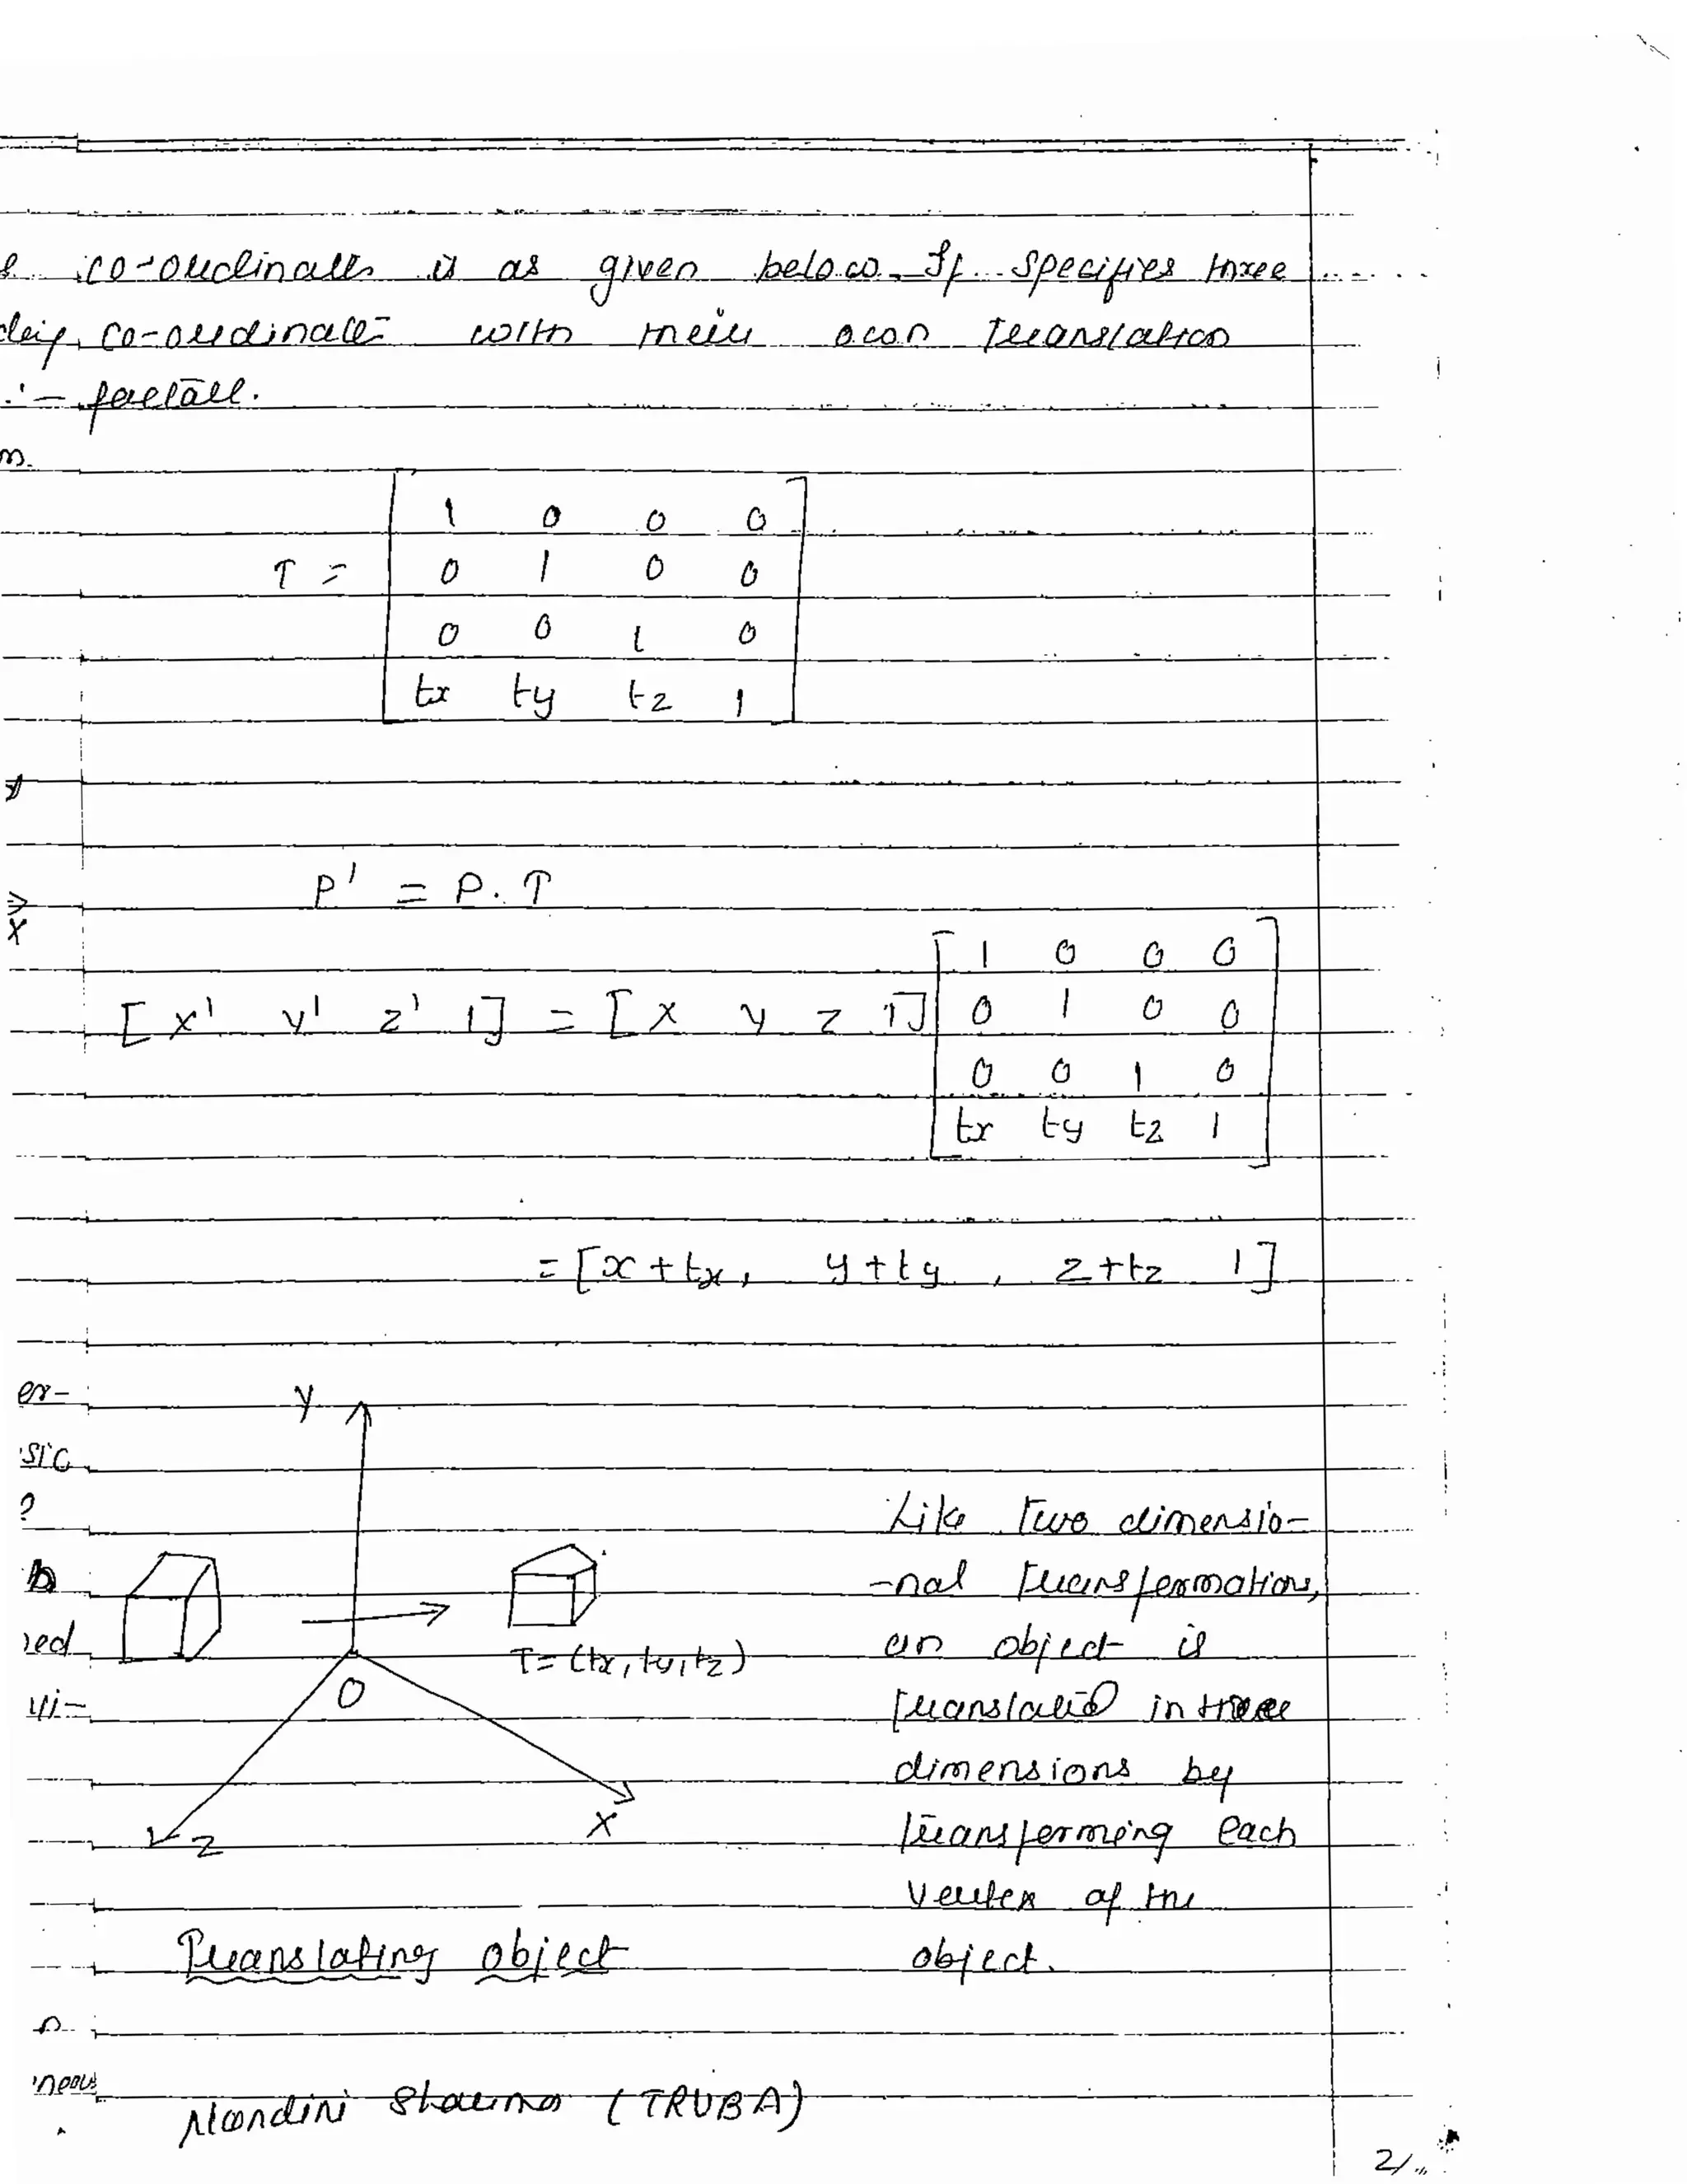 co-ordinates is as given below. It specifies three
co-ordinate with their own translation
factor.
T = [ 1 0 0 0
0 1 0 0
0 0 1 0
tx ty tz 1 ]
P' = P. T
[ x' y' z' 1] = [ x y z 1] [ 1 0 0 0
0 1 0 0
0 0 1 0
tx ty tz 1 ]
= [x + tx, y + ty, z + tz 1]
er-
sic
?
red
vi-
Y
O
X
Z
T = (tx, ty, tz)
Translating object
Like two dimensio-
-nal transformations,
an object is
translated in three
dimensions by
transforming each
vertex of the
object.
Nandini Sharma (TRUBA)
2